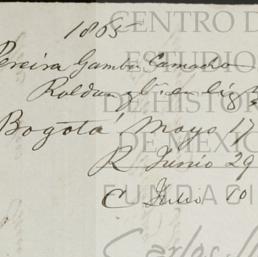 1865
Pereira Gamba Camacho
Roldan
Bogotá, Mayo 17
R Junio 29
C Julio 10
CENTRO DE
ESTUDIO
DE HISTO
DE MEXIC
FUNDACI
Carlos